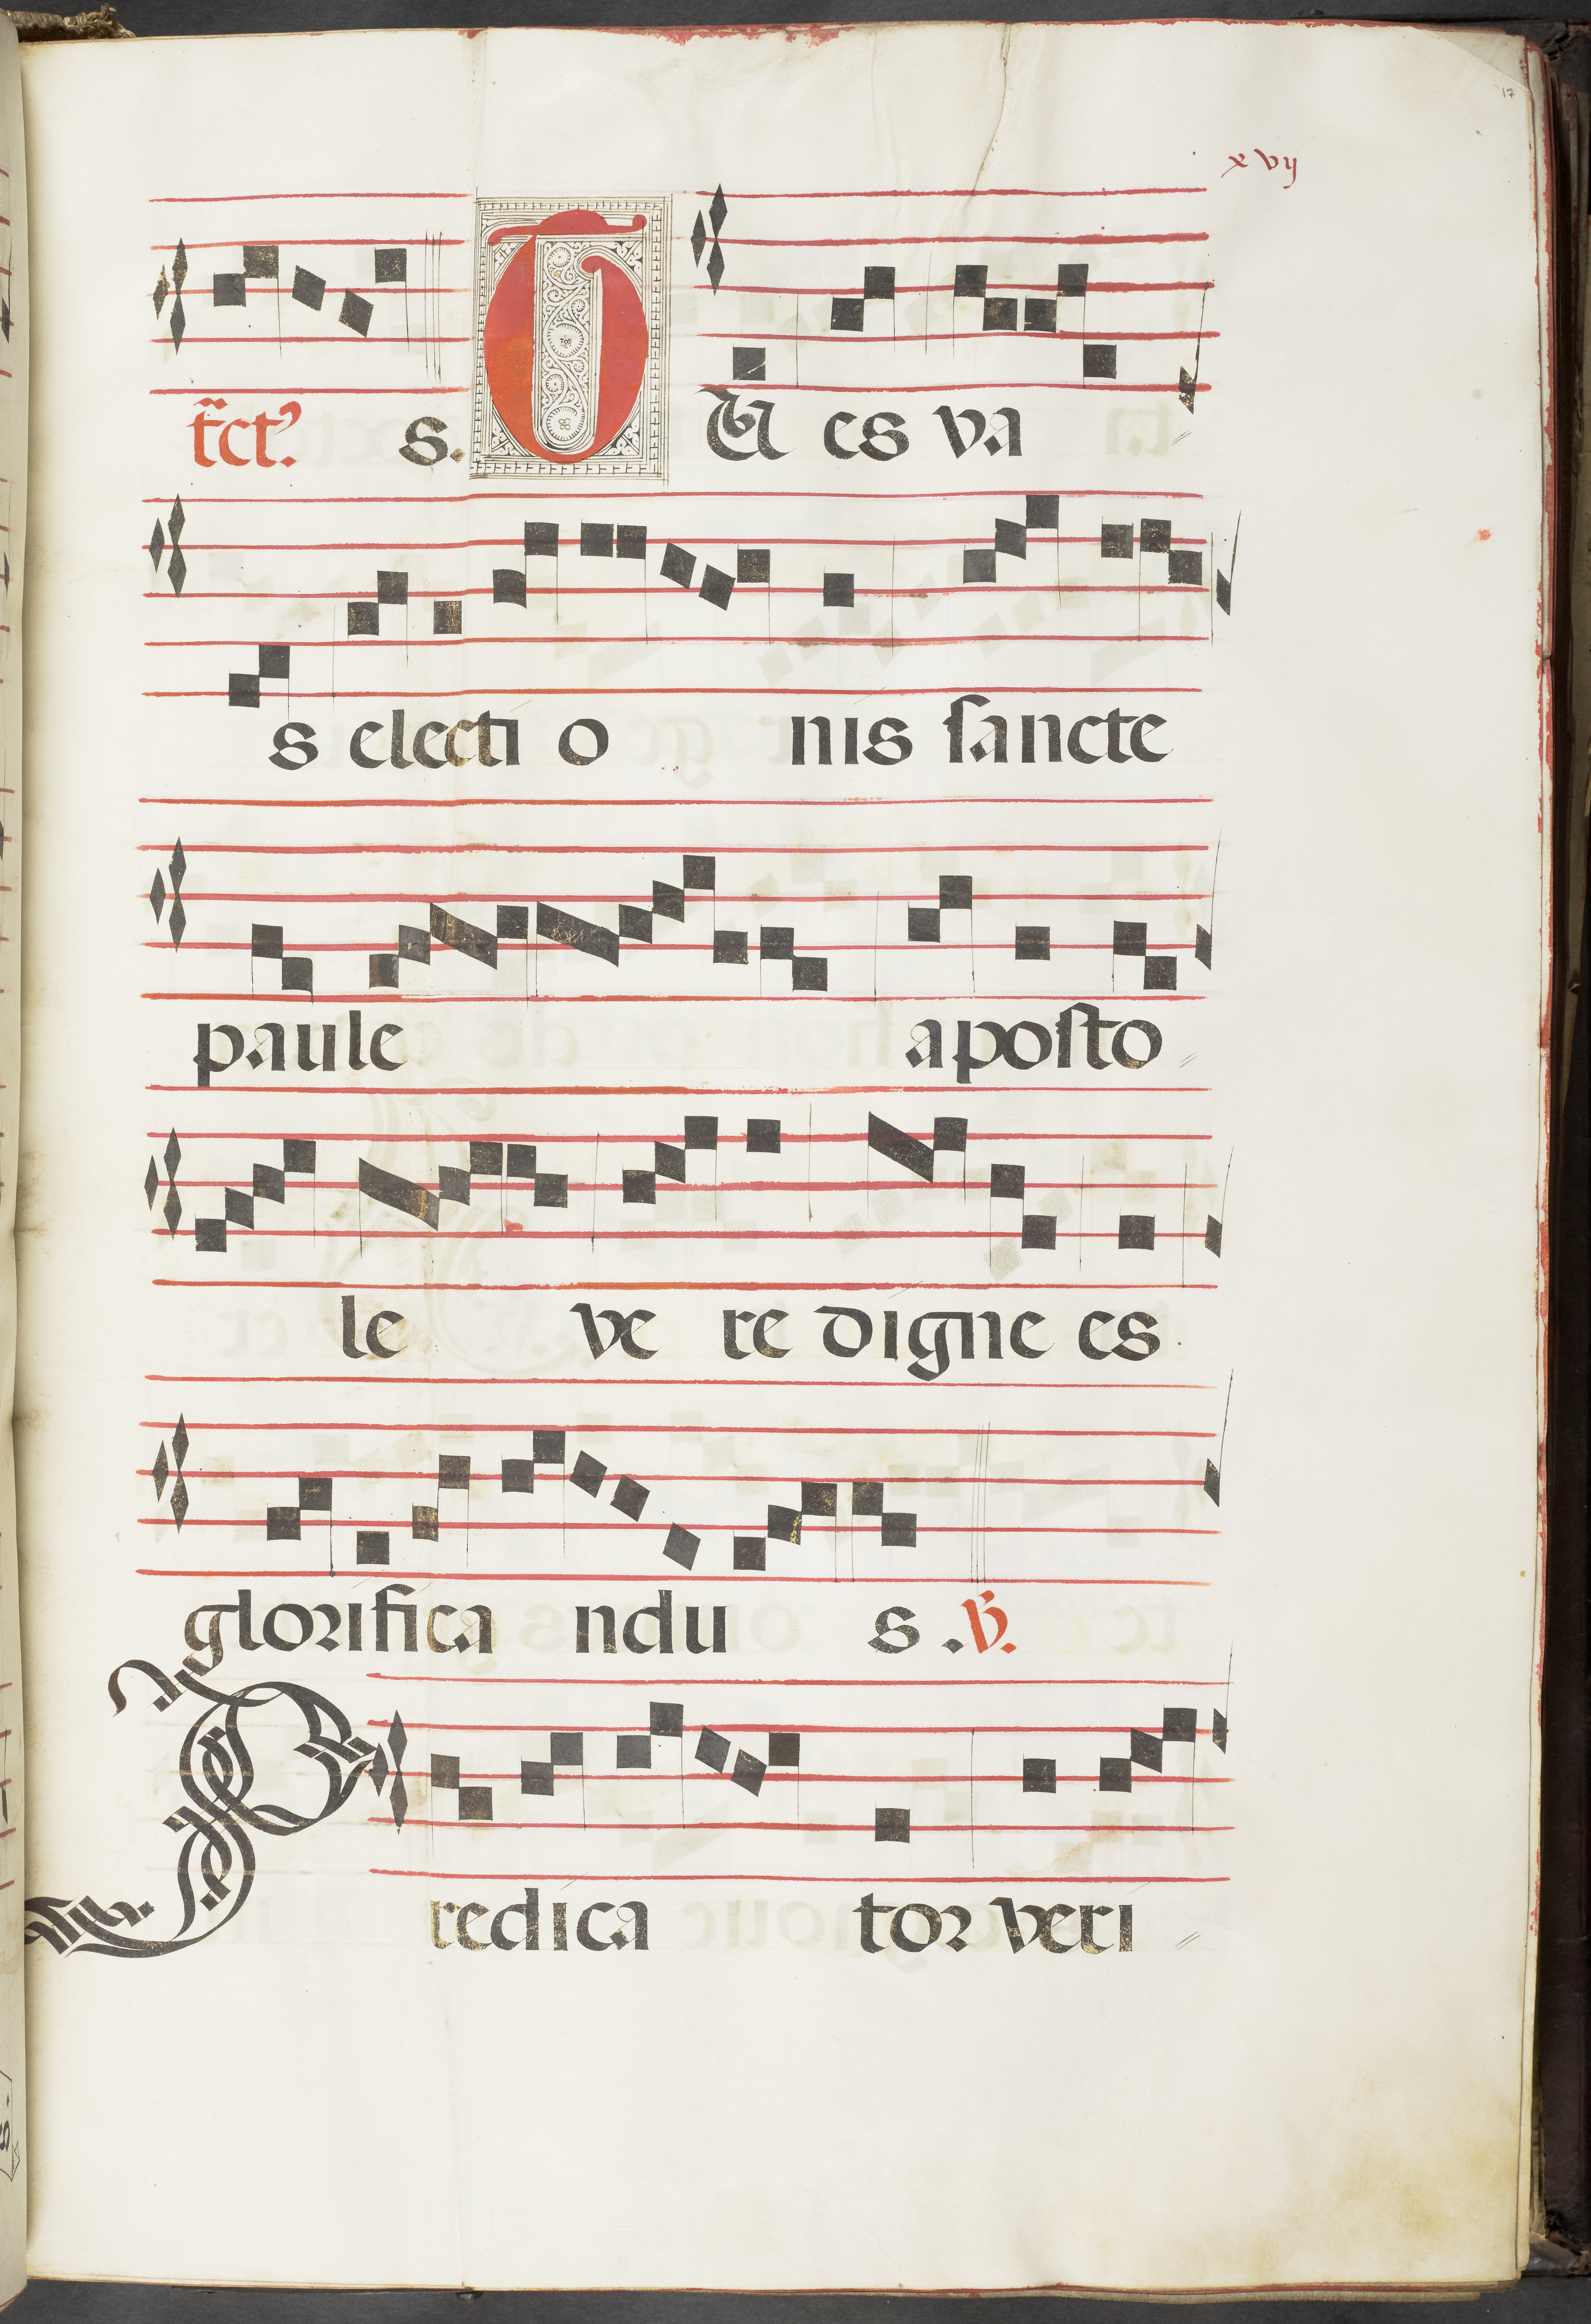 17
xvij
tc̄t⁹. s. TU es va
s electi o nis ſancte
paule apoſto
le ve re digne es
glorifica ndu s. ℣.
Predica tor veri